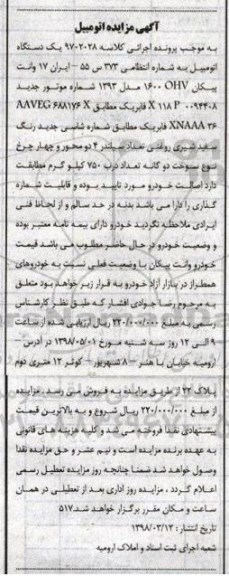 آگهی مزایده اتومبیل
به موجب پرونده اجرائی کلاسه ۹۷۰۲۰۲۸ یک دستگاه
اتومبیل به شماره انتظامی ۳۷۳ س ۵۵ - ایران ۱۷ وانت
پیکان ۱۶۰۰ OHV مدل ۱۳۹۳ شماره موتور جدید
۰۰۹۴۴۰۸ X ۱۱۸ P فابریک مطابق AAVEG ۶۸۸۱۷۶ X
XNAAA ۳۶ فابریک مطابق شماره شاسی جدید رنگ
سفید شیری روغنی تعداد سیلندر ۴ دو محور و چهار چرخ
نوع سوخت دو گانه تعداد درب ۷۵۰ کیلو گرم مطابقت
دارد اصالت خودرو مورد تایید بوده و قابلیت شماره
گذاری را دارا می باشد بدنه در حد سالم و از لحاظ فنی
ایرادی ملاحظه نگردید خودرو دارای بیمه نامه معتبر بوده
و وضعیت خودرو در حال حاضر مطلوب می باشد قیمت
خودرو وانت پیکان با وضعیت فعلی نسبت به خودروهای
همطراز در بازار آزاد خودرو به قرار زیر خواهد بود متعلق
به مرحوم رضا جوادی افشار که طبق نظر کارشناس
رسمی به مبلغ ۲۲۰/۰۰۰/۰۰۰ ریال ارزیابی شده از ساعت
۹ الی ۱۲ روز سه شنبه مورخ ۱۳۹۸/۰۵/۰۱ در آدرس -
ارومیه خیابان با هنر - ۸ شهریور - کوثر ۱۲ متری دوم
پلاک ۲۲ از طریق مزایده به فروش می رسد. مزایده
از مبلغ ۲۲۰/۰۰۰/۰۰۰ ریال شروع و به بالاترین قیمت
پیشنهادی نقدا فروخته می شد و کلیه هزینه های قانونی
به عهده برنده مزایده است و نیم عشر و حق مزایده نقدا
وصول خواهد شد ضمنا چنانچه روز مزایده تعطیل رسمی
اعلام گردد ، مزایده روز اداری بعد از تعطیلی در همان
ساعت و مکان مقرر برگزار خواهد شد.۵۱۷
تاریخ انتشار: ۱۳۹۸/۰۳/۱۳
شعبه اجرای ثبت اسناد و املاک ارومیه